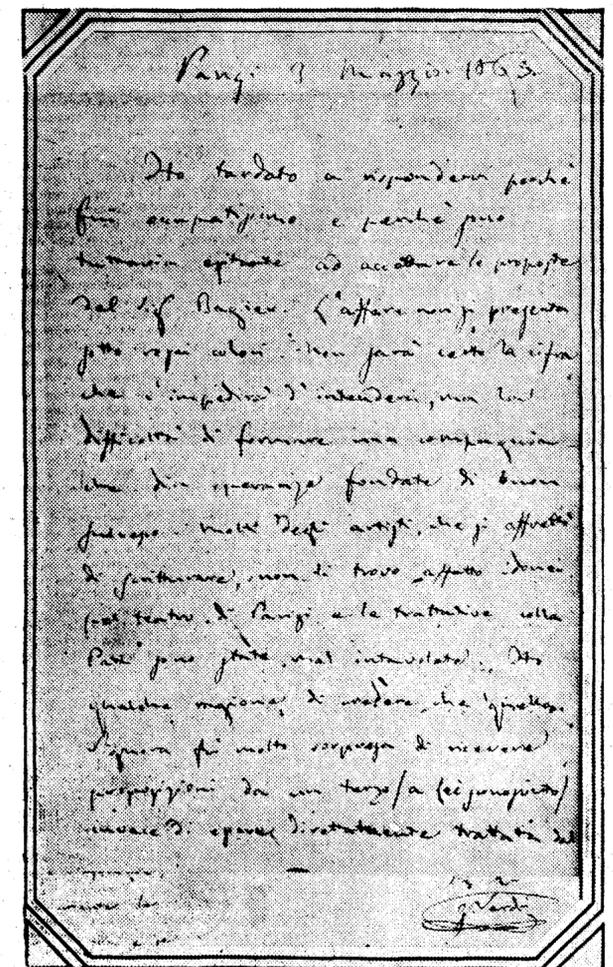 Parigi 3 Maggio 1863.
Ho tardato a rispondervi perchè
fui occupatissimo e perchè sono
tuttavia esitante ad accettare le proposte
del Sig Bagier. L'affare non si presenta
sotto rosei colori. Non sarà certo la cifra
che c'impedirà d'intenderci, ma la
difficoltà di formare una compagnia
che dia speranze fondate di buon
successo. Molti degli artisti, che si affrettò
di scritturare, non li trovo affatto idonei
pel teatro di Parigi e le trattative colla
Patti sono state mal intavolate. Ho
qualche ragione di credere, che quella
Signora fu molto sorpresa di ricevere
proposizioni da un terzo, a
invece di essere direttamente trattata dal
G Verdi